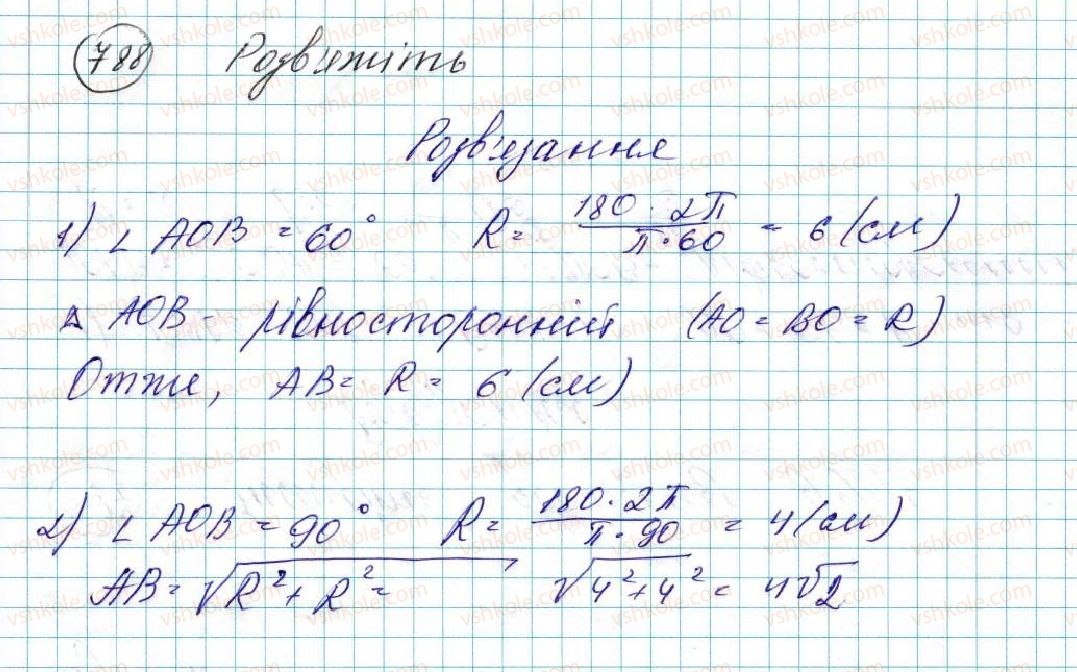 788 Розв'яжіть
Розв'язання
1) ∠ AOB = 60° R = 180 · 2π / π · 60 = 6 (см)
Δ AOB - рівносторонній (AO = BO = R)
Отже, AB = R = 6 (см)
2) ∠ AOB = 90° R = 180 · 2π / π · 90 = 4 (см)
AB = √R² + R² = √4² + 4² = 4√2